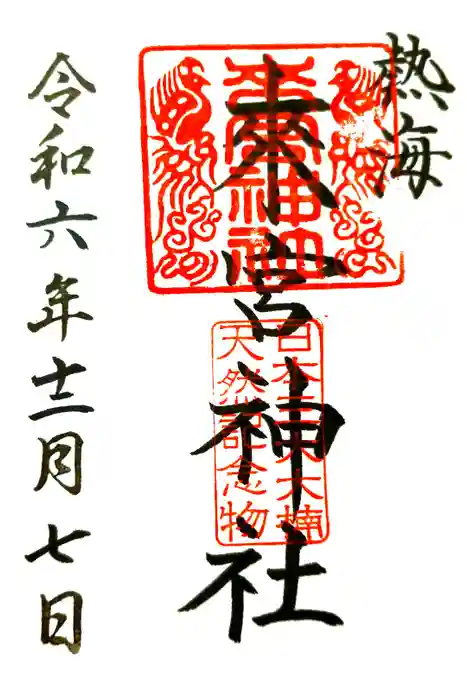 熱海
來宮神社
日本三大大楠
天然記念物
令和六年十二月七日